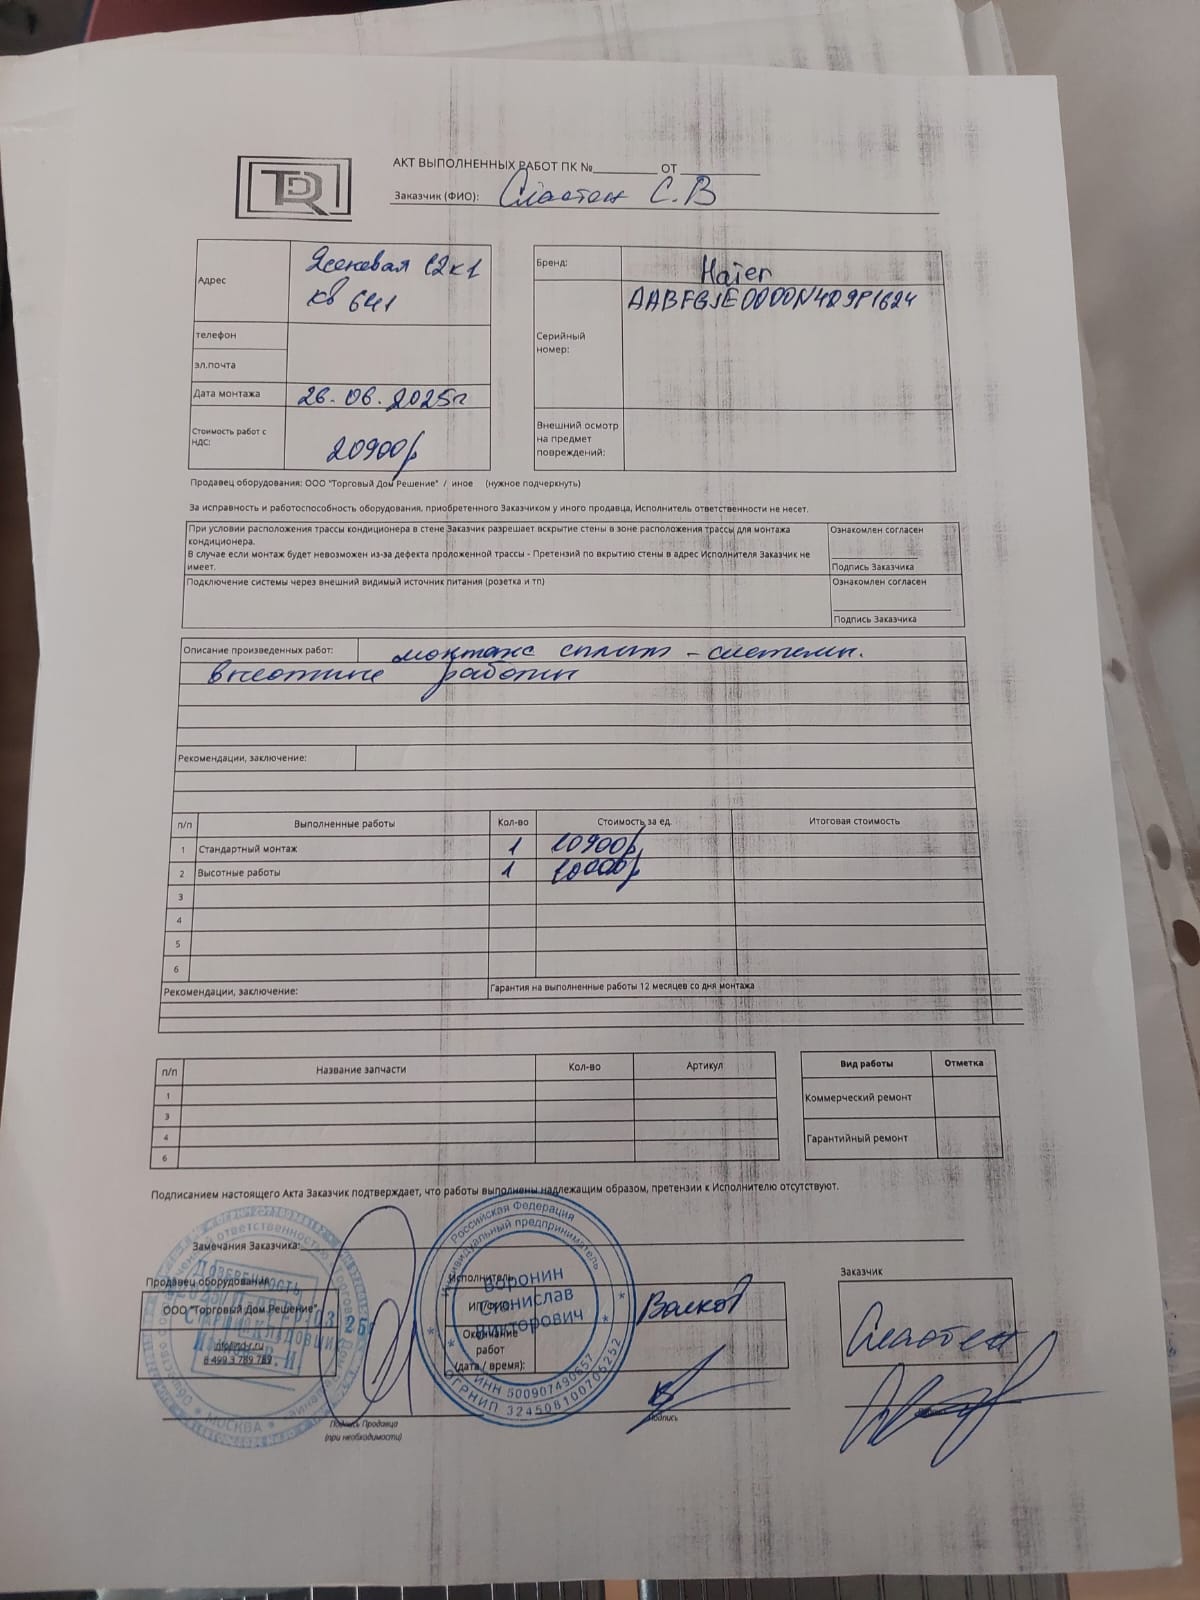 TDR
АКТ ВЫПОЛНЕННЫХ РАБОТ ПК №________ ОТ ________
Заказчик (ФИО): Сластен С.В
Адрес
Ясеневая 12к1
кв 641
телефон
эл.почта
Дата монтажа 26.06.2025г
Стоимость работ с НДС: 20900р
Бренд: Haier
Серийный номер: AABFGJE0000N4P9P1624
Внешний осмотр на предмет повреждений:
Продавец оборудования: ООО "Торговый Дом Решение" / иное (нужное подчеркнуть)
За исправность и работоспособность оборудования, приобретенного Заказчиком у иного продавца, Исполнитель ответственности не несет.
При условии расположения трассы кондиционера в стене Заказчик разрешает вскрытие стены в зоне расположения трассы для монтажа
кондиционера.
В случае если монтаж будет невозможен из-за дефекта проложенной трассы - Претензий по вкрытию стены в адрес Исполнителя Заказчик не
имеет.
Ознакомлен согласен
Подпись Заказчика
Подключение системы через внешний видимый источник питания (розетка и тп)
Ознакомлен согласен
Подпись Заказчика
Описание произведенных работ: монтаж сплит-системы.
высотные работы
Рекомендации, заключение:
п/п Выполненные работы Кол-во Стоимость за ед. Итоговая стоимость
1 Стандартный монтаж 1 10900р
2 Высотные работы 1 10000р
3
4
5
6
Рекомендации, заключение: Гарантия на выполненные работы 12 месяцев со дня монтажа
п/п Название запчасти Кол-во Артикул
1
3
4
6
Вид работы Отметка
Коммерческий ремонт
Гарантийный ремонт
Подписанием настоящего Акта Заказчик подтверждает, что работы выполнены надлежащим образом, претензии к Исполнителю отсутствуют.
Замечания Заказчика:
Продавец оборудования
ООО "Торговый Дом Решение"
8 499 3 789 789
Подпись Продавца
(при необходимости)
ДОВЕРЕННОСТЬ
МОСКВА
Исполнитель
ИП/ФИО: Волков
Окончание
работ
(дата / время):
Подпись
Российская Федерация
Индивидуальный предприниматель
Воронин
Станислав
Викторович
ИНН 500907490657
ОГРНИП 324508100706252
Заказчик
Сластен